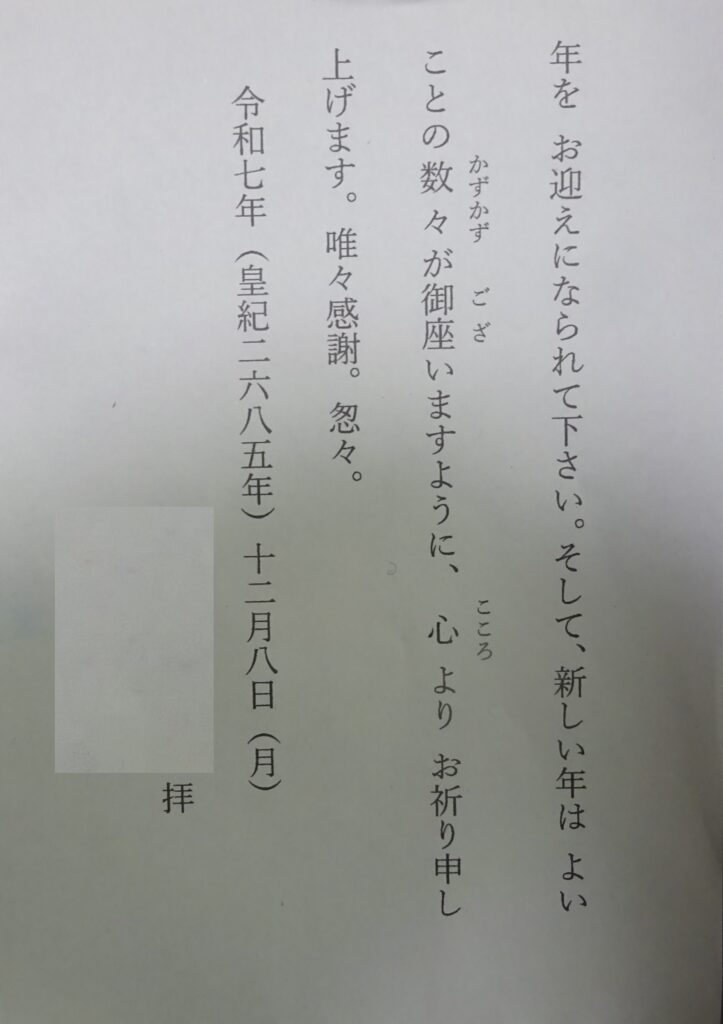 年を　お迎えになられて下さい。そして、新しい年は　よい
ことの数々が御座いますように、　心より　お祈り申し
かずかず　ござ　こころ
上げます。唯々感謝。怱々。
令和七年（皇紀二六八五年）十二月八日（月）
拝